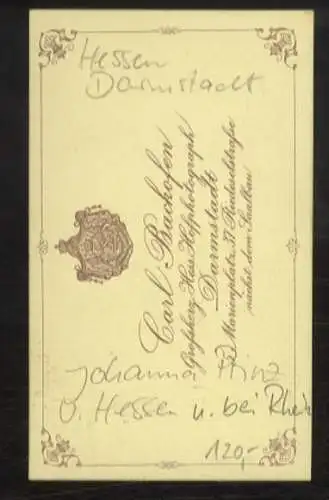 Hessen
Darmstadt
Carl Backofen
Großherz. Hess. Hofphotograph
Darmstadt
37 Marienplatz 37 Riedeselstraße
nächst dem Saalbau
Johanna Prinz
v. Hessen u. bei Rhein
120,-